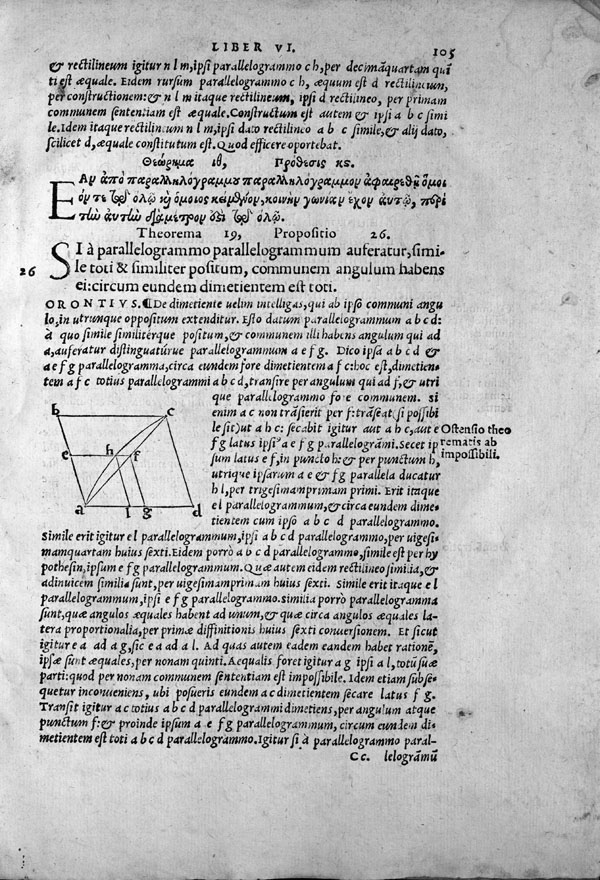 LIBER VI. 105
& rectilineum igitur n l m, ipsi parallelogrammo c h, per decimāquartam quī
ti est æquale. Eidem rursum parallelogrammo c h, æquum est d rectilineum,
per constructionem: & n l m itaque rectilineum, ipsi d rectilineo, per primam
communem sententiam est æquale. Constructum est autem & ipsi a b c simi
le. Idem itaque rectilineum n l m, ipsi dato rectilineo a b c simile, & alij dato,
scilicet d, æquale constitutum est. Quod efficere oportebat.
Θεώρημα ιθ, Πρόθεσις κϛ.
ΕΑν ἀπὸ παραλληλογράμμου παραλληλόγραμμον ἀφαιρεθῇ ὅμοι
όν τε τῷ ὅλῳ καὶ ὁμοίως κείμενον, κοινὴν γωνίαν ἔχον αὐτῷ, περὶ
τὴν αὐτὴν διάμετρόν ἐστι τῷ ὅλῳ.
Theorema 19, Propositio 26.
26 SI à parallelogrammo parallelogrammum auferatur, simi-
le toti & similiter positum, communem angulum habens
ei: circum eundem dimetientem est toti.
ORONTIVS. ¶ De dimetiente uelim intelligas, qui ab ipso communi angu
lo, in utrunque oppositum extenditur. Esto datum parallelogrammum a b c d:
à quo simile similitérque positum, & communem illi habens angulum qui ad
a, auferatur distinguatúrue parallelogrammum a e f g. Dico ipsa a b c d &
a e f g parallelogramma, circa eundem fore dimetientem a f c: hoc est, dimetien-
tem a f c totius parallelogrammi a b c d, transire per angulum qui ad f, & utri
que parallelogrammo fore communem. Si
enim a c non trāsierit per f: trāseat (si possibi
le sit) ut a h c: secabit igitur aut a h c, aut e
f g latus ipsius a e f g parallelogrāmi. Secet ip
sum latus e f, in puncto h: & per punctum h,
utrique ipsarum a e & f g parallela ducatur
h l, per trigesimamprimam primi. Erit itaque
e l parallelogrammum, & circa eundem dime-
tientem cum ipso a b c d parallelogrammo.
Ostensio theo
rematis ab
impossibili.
b c
e h f
a l g d
Simile erit igitur e l parallelogrammum, ipsi a b c d parallelogrammo, per uigesi-
mamquartam huius sexti. Eidem porrò a b c d parallelogrammo, simile est per hy
pothesin, ipsum e f g parallelogrammum. Quæ autem eidem rectilineo similia, &
adinuicem similia sunt, per uigesimamprimam huius sexti. Simile erit itaque e l
parallelogrammum, ipsi e f g parallelogrammo. Similia porrò parallelogramma
sunt, quæ angulos æquales habent ad unum, & quæ circa angulos æquales la-
tera proportionalia, per primæ diffinitionis huius sexti conuersionem. Et sicut
igitur e a ad a g, sic e a ad a l. Ad quas autem eadem eandem habet rationē,
ipsæ sunt æquales, per nonam quinti. Aequalis foret igitur a g ipsi a l, totū suæ
parti: quod per nonam communem sententiam est impossibile. Idem etiam subse-
quetur inconueniens, ubi posueris eundem a c dimetientem secare latus f g.
Transit igitur a c totius a b c d parallelogrammi dimetiens, per angulum atque
punctum f: & proinde ipsum a e f g parallelogrammum, circum eundem di-
metientem est toti a b c d parallelogrammo. Igitur si à parallelogrammo paral-
Cc. lelogrāmū